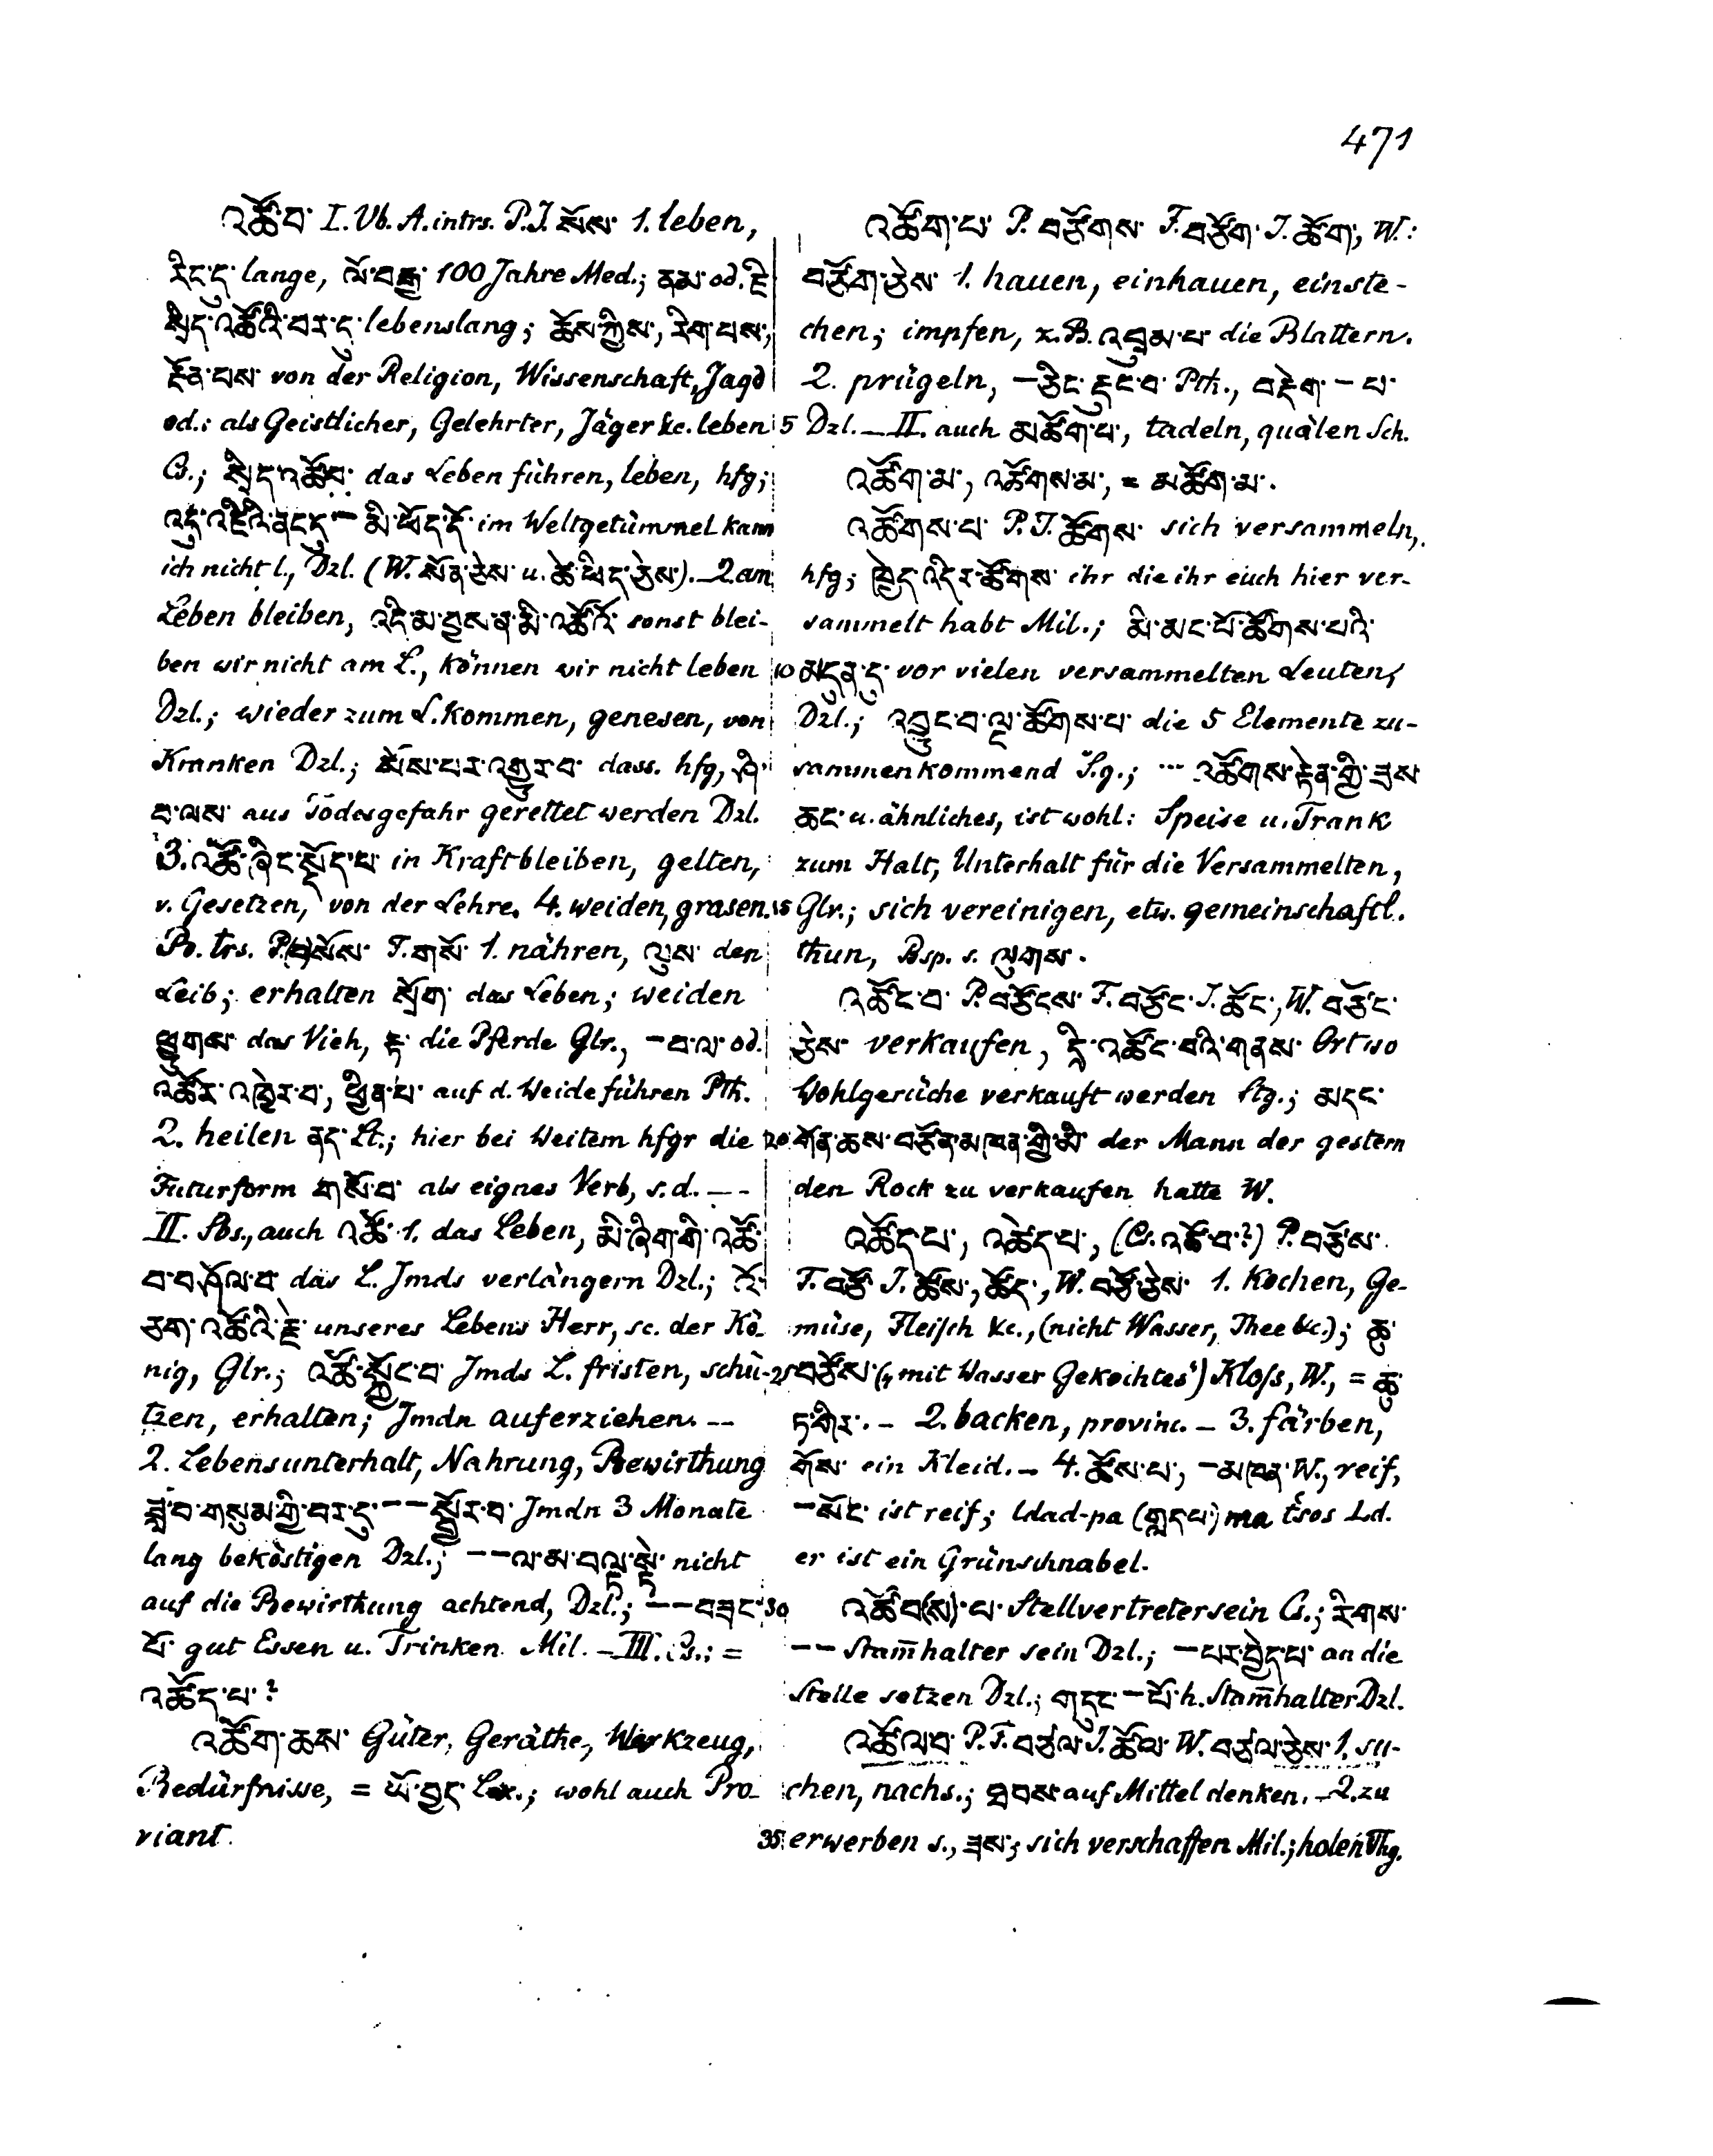 471
འཚོ་བ་ I. Vb. A. intrs. P. J. སོས་ 1. leben,
རིང་དུ་ lange, ལོ་བརྒྱ་ 100 Jahre Med.; ནམ་ od. ཇི་
སྲིད་འཚོའི་བར་དུ་ lebenslang; ཆོས་ཀྱིས་, རིག་པས་,
རྔོན་པས་ von der Religion, Wissenschaft, Jagd
od.: als Geistlicher, Gelehrter, Jäger &c. leben
Cs.; སྲིད་འཚོབ་ das Leben führen, leben, hfg;
འདུ་འཛིའི་ནང་དུ་ — མི་ཕོད་དོ་ im Weltgetümmel kann
ich nicht l., Dzl. (W. སོན་ཅེས་ u. ཚེ་ཕིད་ཅེས་). _ 2. am
Leben bleiben, འདི་མ་བྱས་ན་མི་འཚོའོ་ sonst blei-
ben wir nicht am L., können wir nicht leben
Dzl.; wieder zum L. kommen, genesen, von
Kranken Dzl.; སོས་པར་འགྱུར་བ་ dass. hfg, ཤི་
བ་ལས་ aus Todesgefahr gerettet werden Dzl.
3. འཚོ་ཞིང་སྡོད་པ་ in Kraft bleiben, gelten,
v. Gesetzen, von der Lehre. 4. weiden, grasen.
B. trs. P. (བ)སོས་ F. གསོ་ 1. nähren, ལུས་ den
Leib; erhalten སྲོག་ das Leben; weiden
ཕྱུགས་ das Vieh, རྟ་ die Pferde Glr., — བ་ལ་ od.
འཚོར་འཁྱེར་བ་, ཕྱིན་པ་ auf d. Weide führen Pth.
2. heilen ནད་ Lt.; hier bei Weitem hfgr die
Futurform གསོ་བ་ als eignes Verb, s. d. _ _
II. Sbs., auch འཚོ་ 1. das Leben, མི་ཞིག་གི་འཚོ་
བ་བཤོལ་བ་ das L. Jmds verlängern Dzl.; ངོ་
ཅག་འཚོའི་རྗེ་ unseres Lebens Herr, sc. der Kö-
nig, Glr.; འཚོ་སྐྱོང་བ་ Jmds L. fristen, schü-
tzen, erhalten; Jmdn auferziehen. _ _
2. Lebensunterhalt, Nahrung, Bewirthung
ཟླ་བ་གསུམ་གྱི་བར་དུ་ — — སྦྱོར་བ་ Jmdn 3 Monate
lang beköstigen Dzl.; — — ལ་མ་བལྟ་སྟེ་ nicht
auf die Bewirthung achtend, Dzl.; — — བཟང་
པོ་ gut Essen u. Trinken Mil. _ III. Cs.: =
འཚོད་པ་?
འཚོག་ཆས་ Güter, Geräthe, Werkzeug,
Bedürfnisse, = ཡོ་བྱད་ Lex.; wohl auch Pro-
viant.
འཚོག་པ་ P. བཙོགས་ F. བཙོག་ J. ཚོག་, W.:
བཙོག་ཅེས་ 1. hauen, einhauen, einste-
chen; impfen, z. B. འབྲུམ་པ་ die Blattern.
2. prügeln, — ཅིང་རྡུང་བ་ Pth., བརྡེག་ — པ་
5 Dzl. _ II. auch མཚོག་པ་, tadeln, quälen Sch.
འཚོག་མ་, འཚོགས་མ་, = མཚོག་མ་.
འཚོགས་པ་ P. J. ཚོགས་ sich versammeln,
hfg; ཁྱེད་འདིར་ཚོགས་ ihr die ihr euch hier ver-
sammelt habt Mil.; མི་མང་པོ་ཚོགས་པའི་
10 མདུན་དུ་ vor vielen versammelten Leuten,
Dzl.; འབྱུང་བ་ལྔ་ཚོགས་པ་ die 5 Elemente zu-
sammenkommend S.g.; ... འཚོགས་རྟེན་གྱི་ཟས་
ཆང་ u. ähnliches, ist wohl: Speise u. Trank
zum Halt, Unterhalt für die Versammelten,
15 Glr.; sich vereinigen, etw. gemeinschaftl.
thun, Bsp. s. ལུགས་.
འཚོང་བ་ P. བཙོངས་ F. བཙོང་ J. ཚོང་, W. བཙོང་
ཅེས་ verkaufen, དྲི་འཚོང་བའི་གནས་ Ort wo
Wohlgerüche verkauft werden Stg.; མདང་
20 གོན་ཆས་བཙོན་མཁན་གྱི་མི་ der Mann der gestern
den Rock zu verkaufen hatte W.
འཚོད་པ་, འཚེད་པ་, (Cs. འཚོ་བ་?) P. བཙོས་
F. བཙོ་ J. ཚོས་, ཚོད་, W. བཙོ་ཅེས་ 1. kochen, Ge-
müse, Fleisch &c., (nicht Wasser, Thee &c.); ཆུ་
25 བཙོས་ („mit Wasser Gekochtes") Kloss, W., = ཆུ་
ཏ་གིར་. _ 2. backen, provinc. _ 3. färben,
གོས་ ein Kleid. _ 4. ཚོས་པ་, — མཁན་ W., reif,
— སོང་ ist reif; ldad-pa (གླད་པ་) ma tšos Ld.
er ist ein Grünschnabel.
30 འཚོབ(ས)་པ་ Stellvertreter sein Cs.; རིགས་
— — Stam̄halter sein Dzl.; — པར་བྱེད་པ་ an die
Stelle setzen Dzl.; གདུང་ — པོ་ h. Stam̄halter Dzl.
འཚོལ་བ་ P. F. བཙལ་ J. ཚོལ་ W. བཙལ་ཅེས་ 1. su-
chen, nachs.; ཐབས་ auf Mittel denken. _ 2. zu
35 erwerben s., ཟས་; sich verschaffen Mil.; holen Thg.